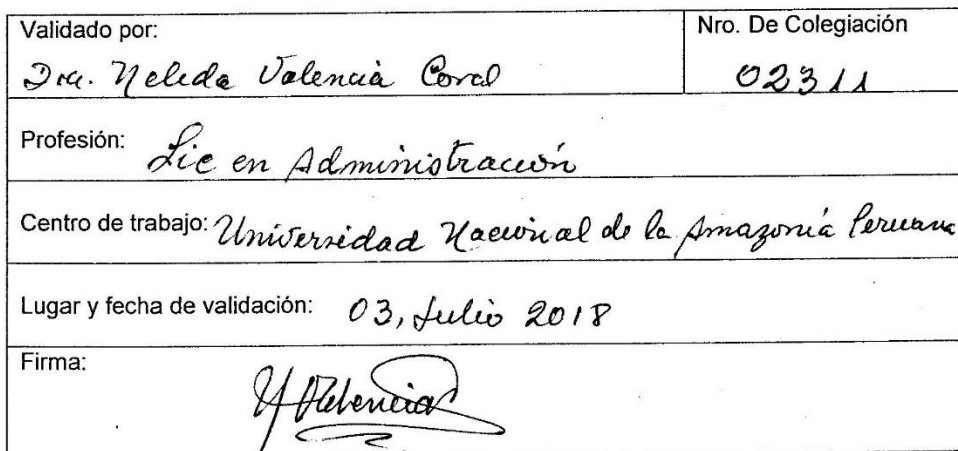 Validado por:
Dra. Nelida Valencia Coral
Nro. De Colegiación
02311
Profesión: Lic en Administración
Centro de trabajo: Universidad Nacional de la Amazonía Peruana
Lugar y fecha de validación: 03, Julio 2018
Firma:
Valencia